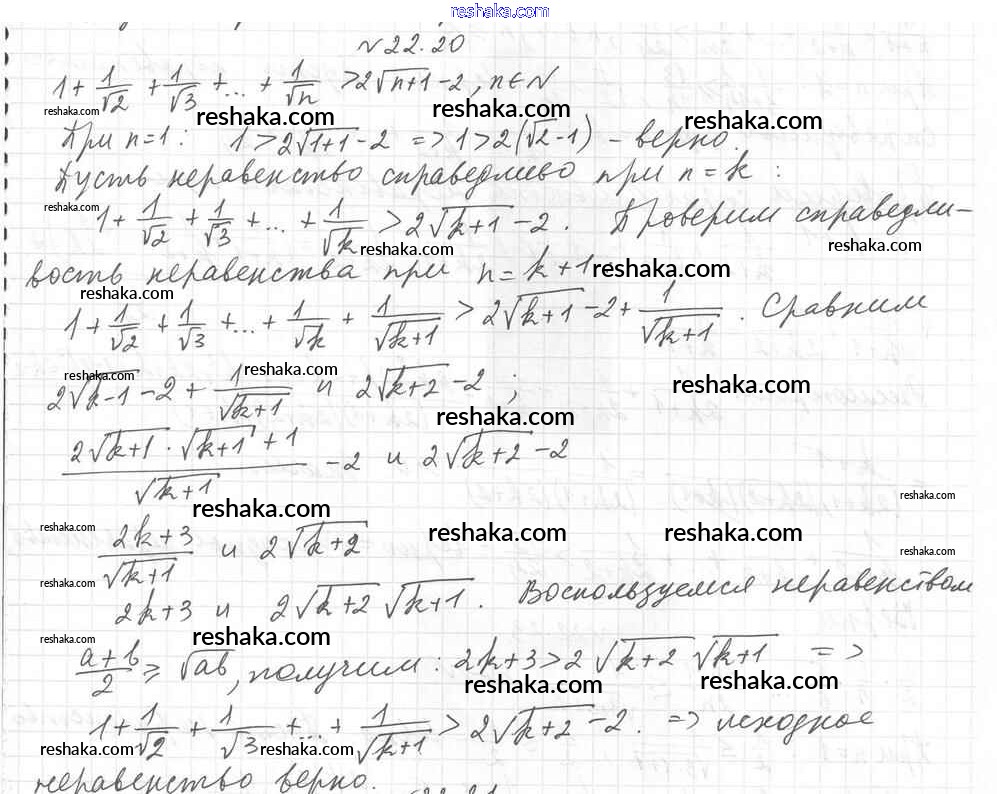 reshaka.com
№22.20
1+1/√2+1/√3+...+1/√n>2√(n+1)-2, n∈N
reshaka.com reshaka.com reshaka.com reshaka.com
При n=1: 1>2√(1+1)-2 => 1>2(√2-1) - верно.
Пусть неравенство справедливо при n=k:
reshaka.com
1+1/√2+1/√3+...+1/√k>2√(k+1)-2. Проверим справедли-
reshaka.com reshaka.com
вость неравенства при n=k+1
reshaka.com reshaka.com
1+1/√2+1/√3+...+1/√k+1/√(k+1)>2√(k+1)-2+1/√(k+1). Сравним
reshaka.com reshaka.com
2√(k-1)-2+1/√(k+1) и 2√(k+2)-2;
reshaka.com reshaka.com
(2√(k+1)·√(k+1)+1)/√(k+1)-2 и 2√(k+2)-2
reshaka.com reshaka.com
reshaka.com reshaka.com reshaka.com
(2k+3)/√(k+1) и 2√(k+2)
reshaka.com reshaka.com
2k+3 и 2√(k+2)√(k+1). Воспользуемся неравенством
reshaka.com reshaka.com
(a+b)/2≥√ab, получим: 2k+3>2√(k+2)√(k+1) =>
reshaka.com reshaka.com
1+1/√2+1/√3+...+1/√(k+1)>2√(k+2)-2. => исходное
reshaka.com reshaka.com reshaka.com
неравенство верно.
reshaka.com